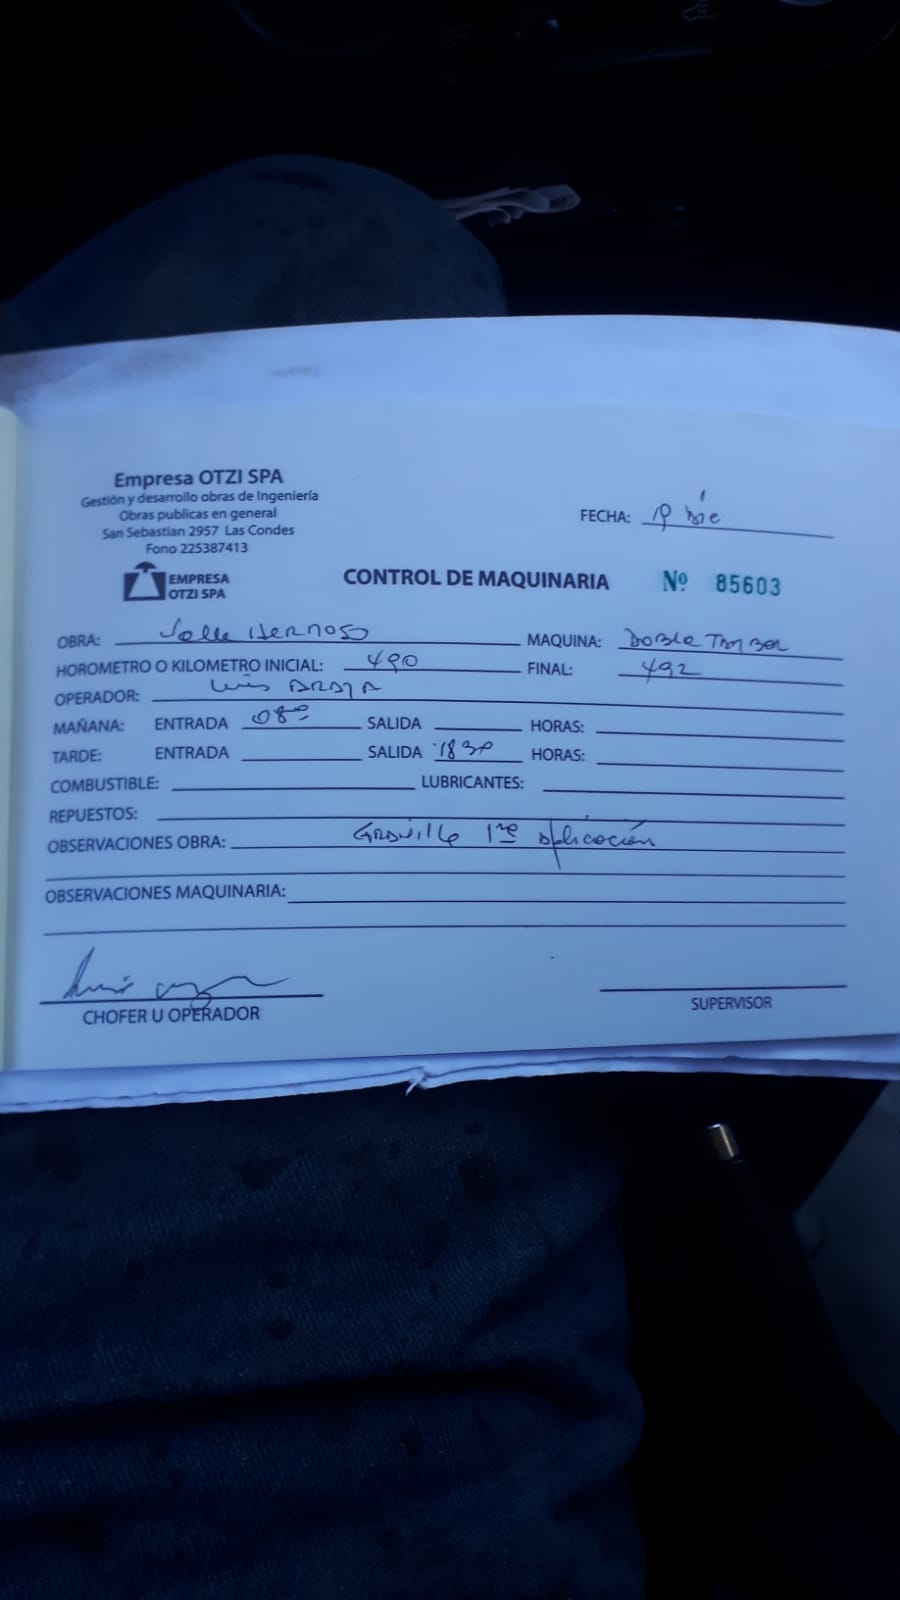 Empresa OTZI SPA
Gestión y desarrollo obras de Ingeniería
Obras publicas en general
San Sebastian 2957 Las Condes
Fono 225387413
EMPRESA
OTZI SPA
FECHA: Dic
CONTROL DE MAQUINARIA Nº 85603
OBRA: Valle Hermoso MAQUINA: Doble Tambor
HOROMETRO O KILOMETRO INICIAL: 490 FINAL: 492
OPERADOR: Luis ARAYA
MAÑANA: ENTRADA 08⁰⁰ SALIDA HORAS:
TARDE: ENTRADA SALIDA 18 30 HORAS:
COMBUSTIBLE: LUBRICANTES:
REPUESTOS:
OBSERVACIONES OBRA: Gravilla 1ra Aplicación
OBSERVACIONES MAQUINARIA:
CHOFER U OPERADOR SUPERVISOR